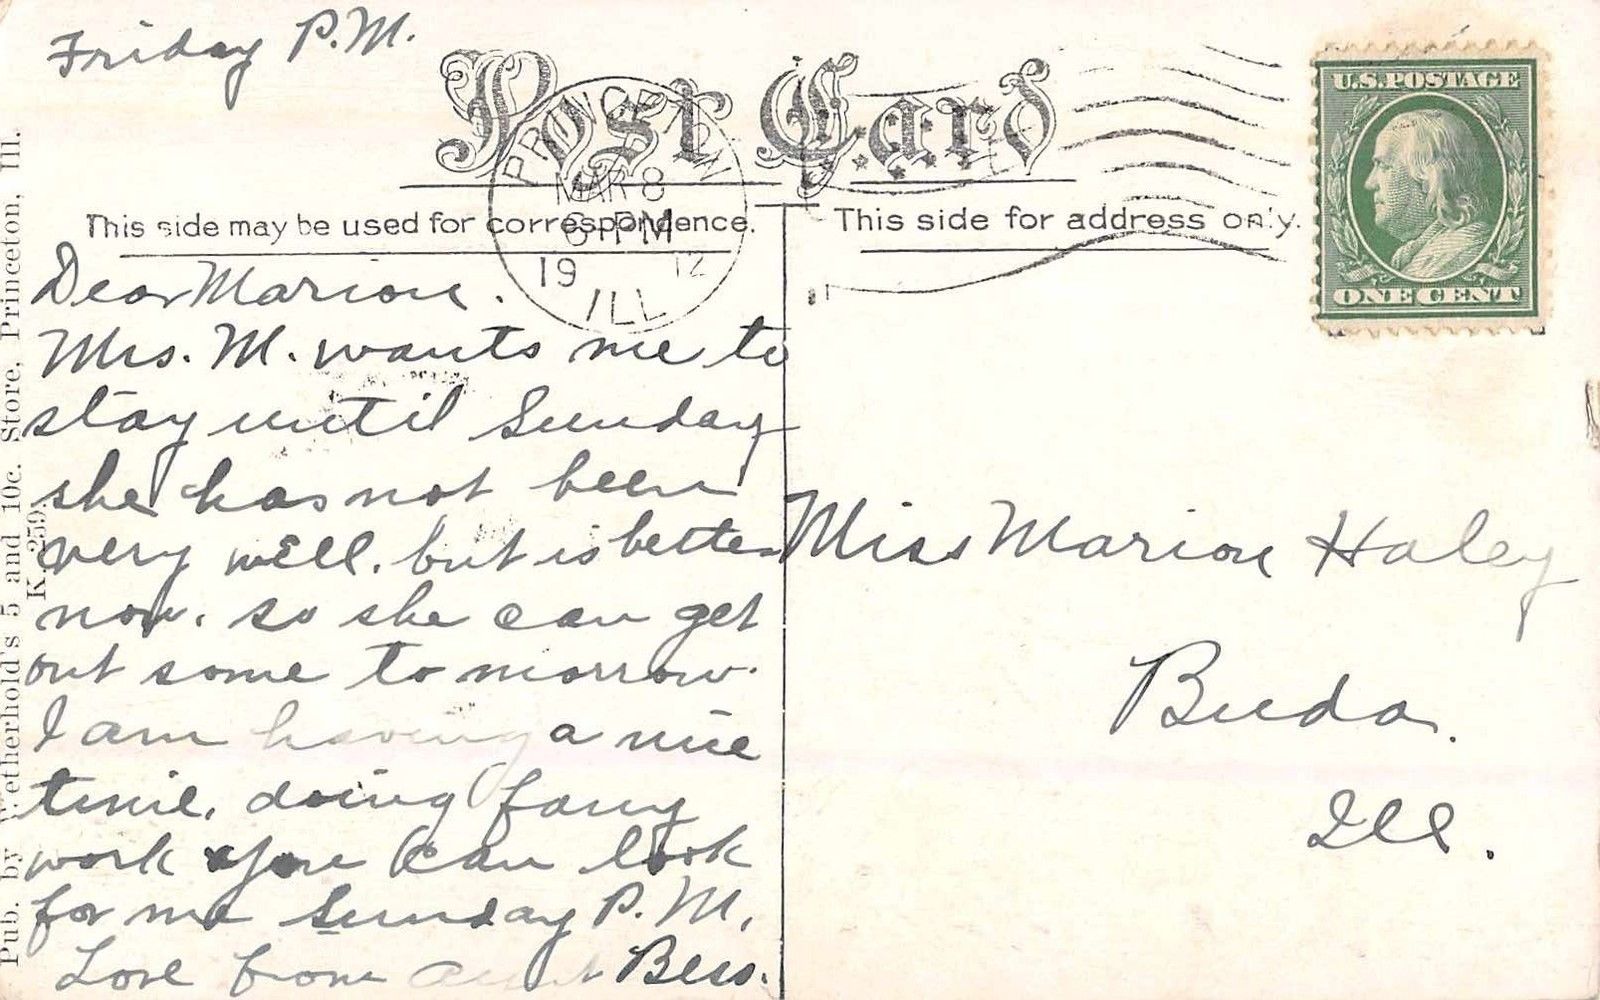 Friday P.M.
Post Card
PRINCETON
MAR 8
6 PM
19 12
ILL
U.S. POSTAGE
ONE CENT
This side may be used for correspondence.
This side for address only.
Dear Marion.
Mrs. M. wants me to
stay until Sunday
she has not been
very well. but is better
now. so she can get
out some to morrow.
I am having a nice
time. doing fancy
work you can look
for me Sunday P.M.
Love from aunt Bess.
Miss Marion Haley
Buda.
Ill.
Pub. by Wetherhold's 5 and 10c. Store, Princeton, Ill.
K. 259.